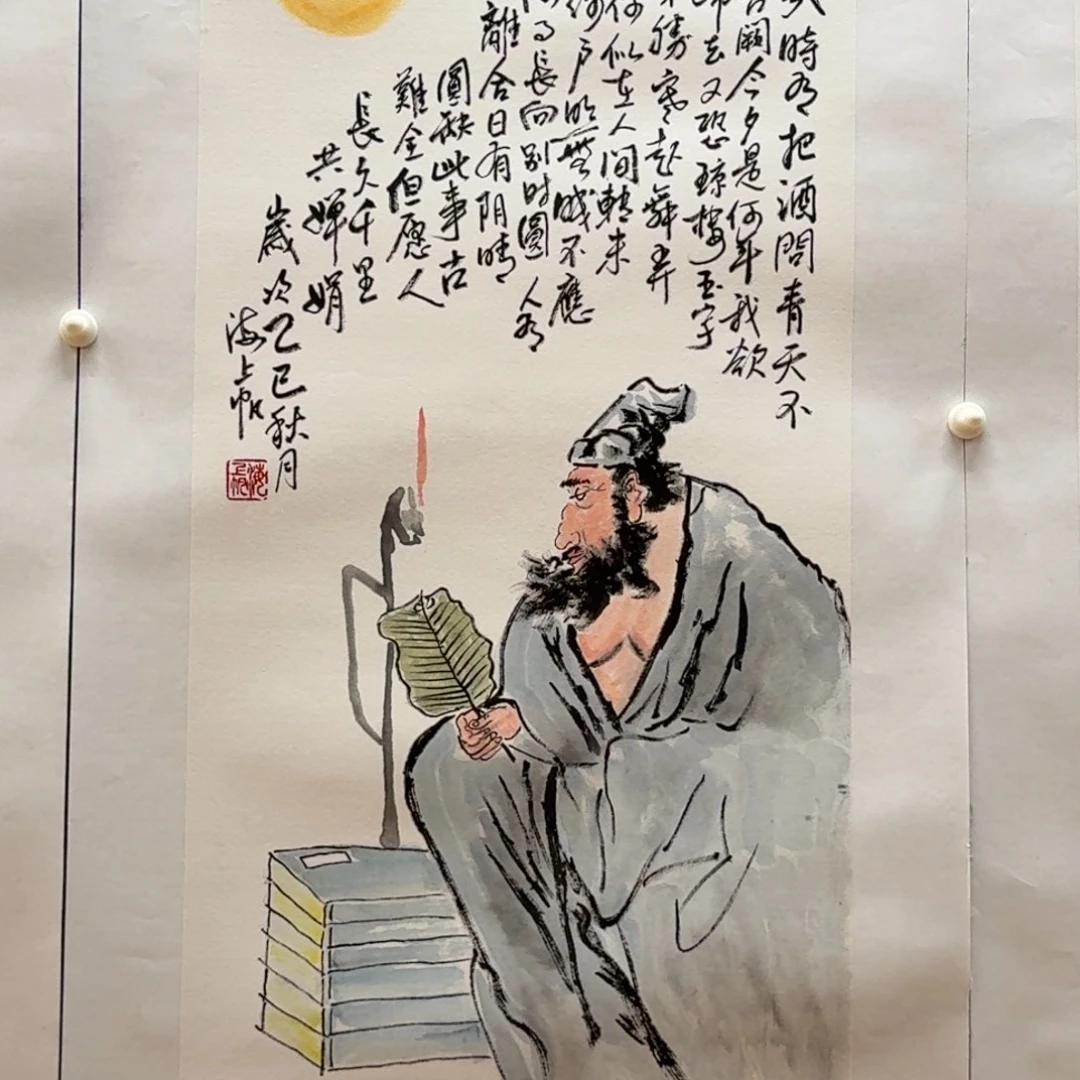 時有把酒問青天不
闕今夕是何年我欲
去又恐琼楼玉宇
勝寒起舞弄
似在人間轉朱
户照無眠不應
事長向别时圓人有
離合日有阴晴
圓缺此事古
難全但愿人
長久千里
共嬋娟
歲次乙巳秋月
海上帆
海上帆